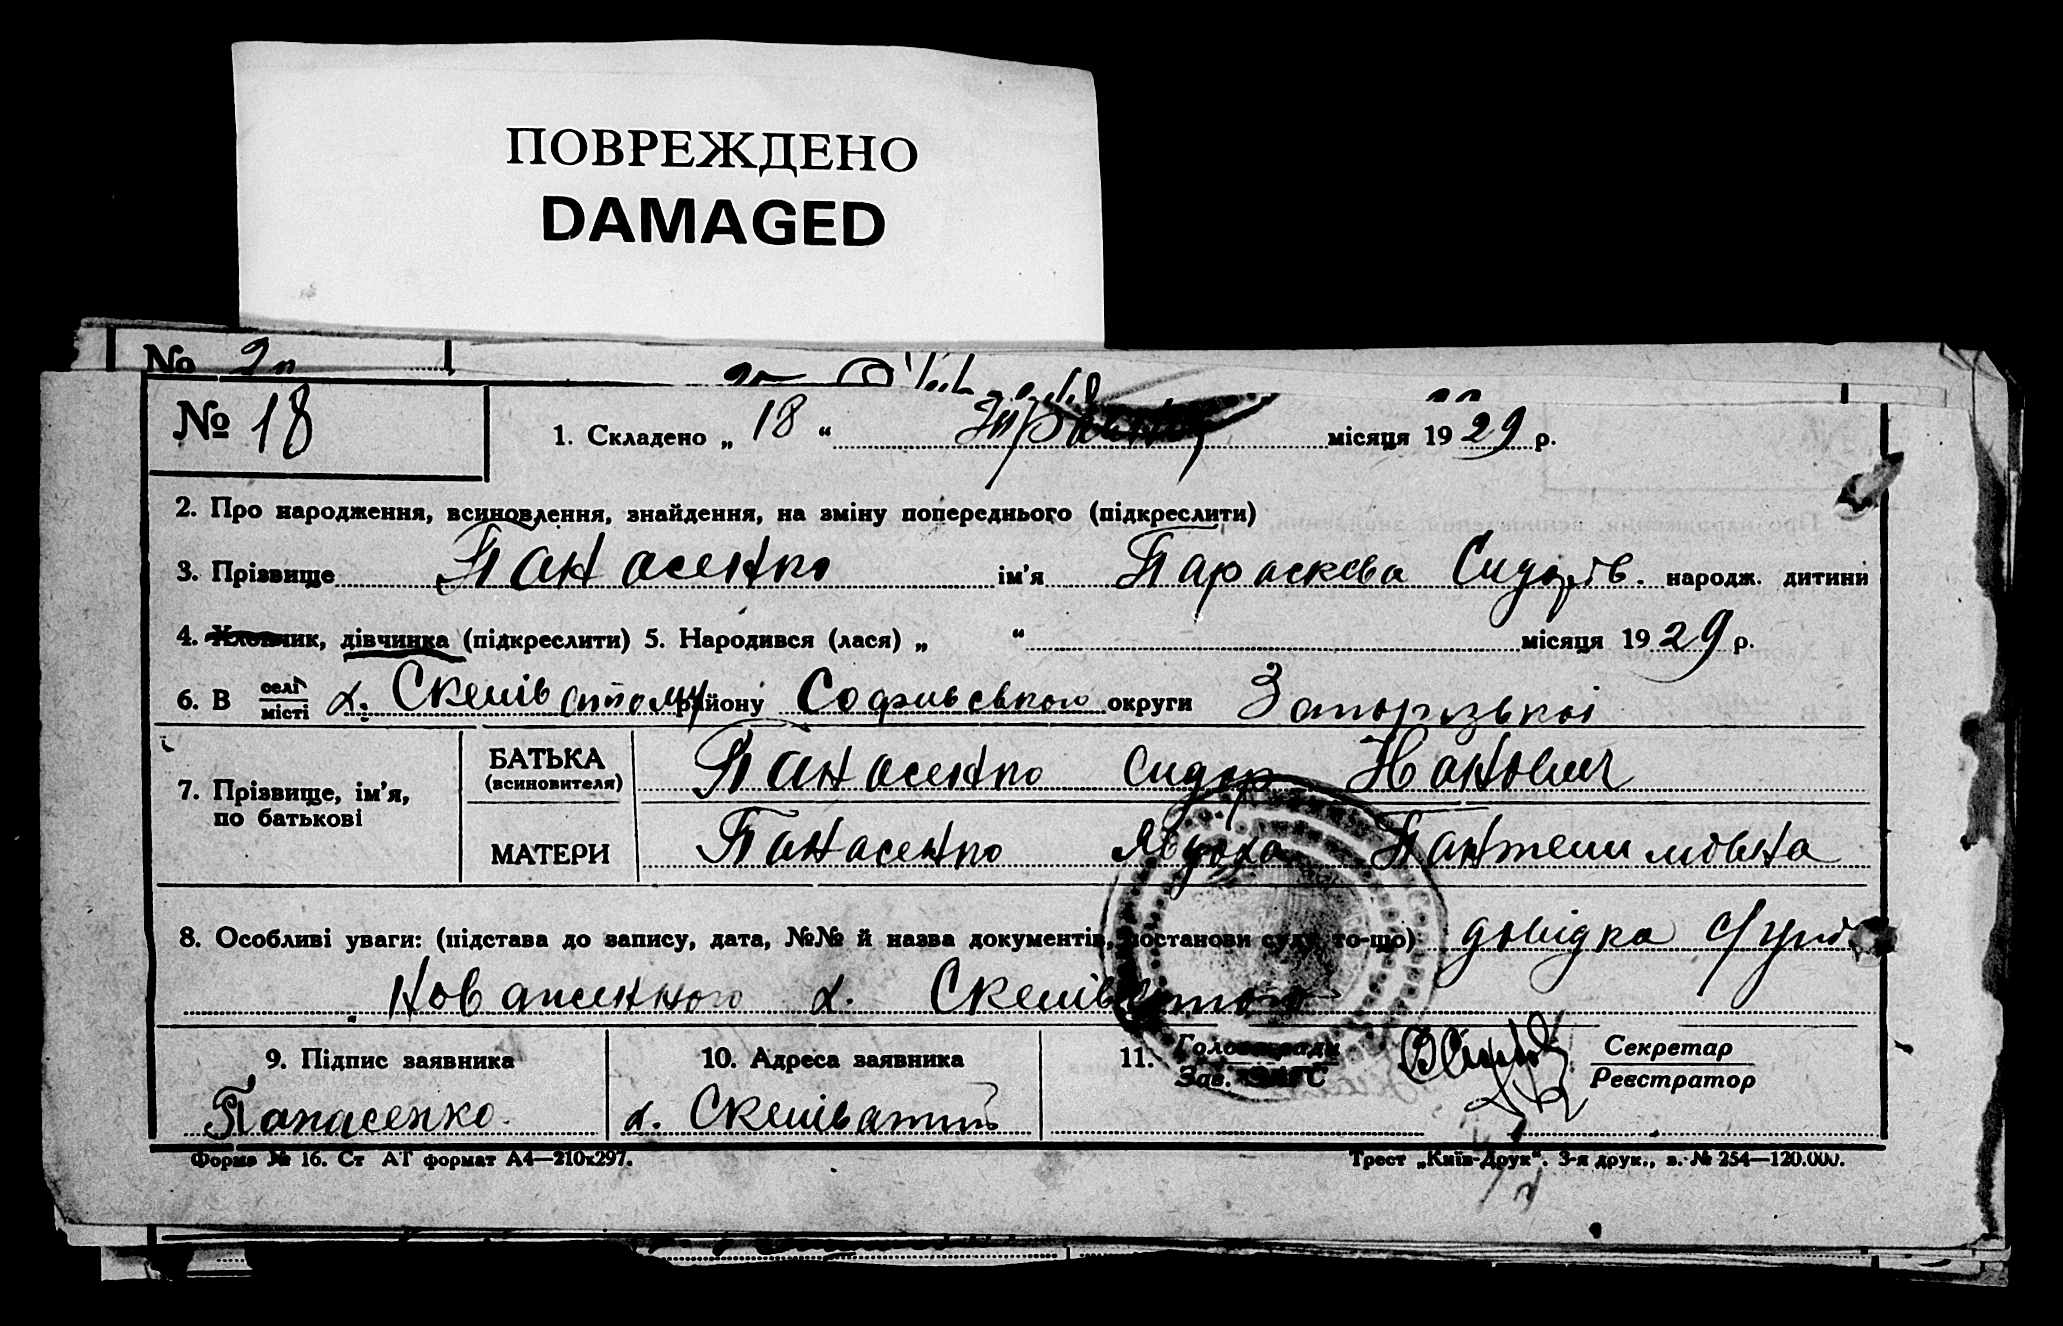 ПОВРЕЖДЕНО
DAMAGED
№
№ 18
1. Складено „ 18 “ місяця 1929 р.
2. Про народження, всиновлення, знайдення, на зміну попереднього (підкреслити)
3. Прізвище Панасенко ім’я Параскева Сидорів. народж. дитини
4. Хлопчик, дівчинка (підкреслити) 5. Народився (лася) „ “ місяця 1929 р.
6. В селі місті х. району Софиевського округи
7. Прізвище, ім’я, по батькові
БАТЬКА (всиновителя) Панасенко Сидор
МАТЕРИ Панасенко Явдоха
8. Особливі уваги: (підстава до запису, дата, №№ й назва документів, постанови суду то-що) довідка
х.
9. Підпис заявника 10. Адреса заявника 11. Голова ради Зав. ЗАГС Секретар Реєстратор
Панасенко. х.
Форма № 16. Ст АТ формат А4—210х297. Трест „Київ-Друк“. 3-я друк., з. № 254—120.000.